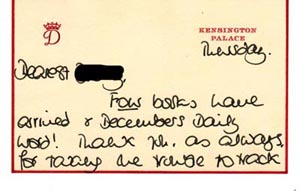 D
KENSINGTON
PALACE
Thursday.
Dearest
Four books have
arrived & Decembers Daily
Word! Thank yh. as always,
for taking the trouble to track